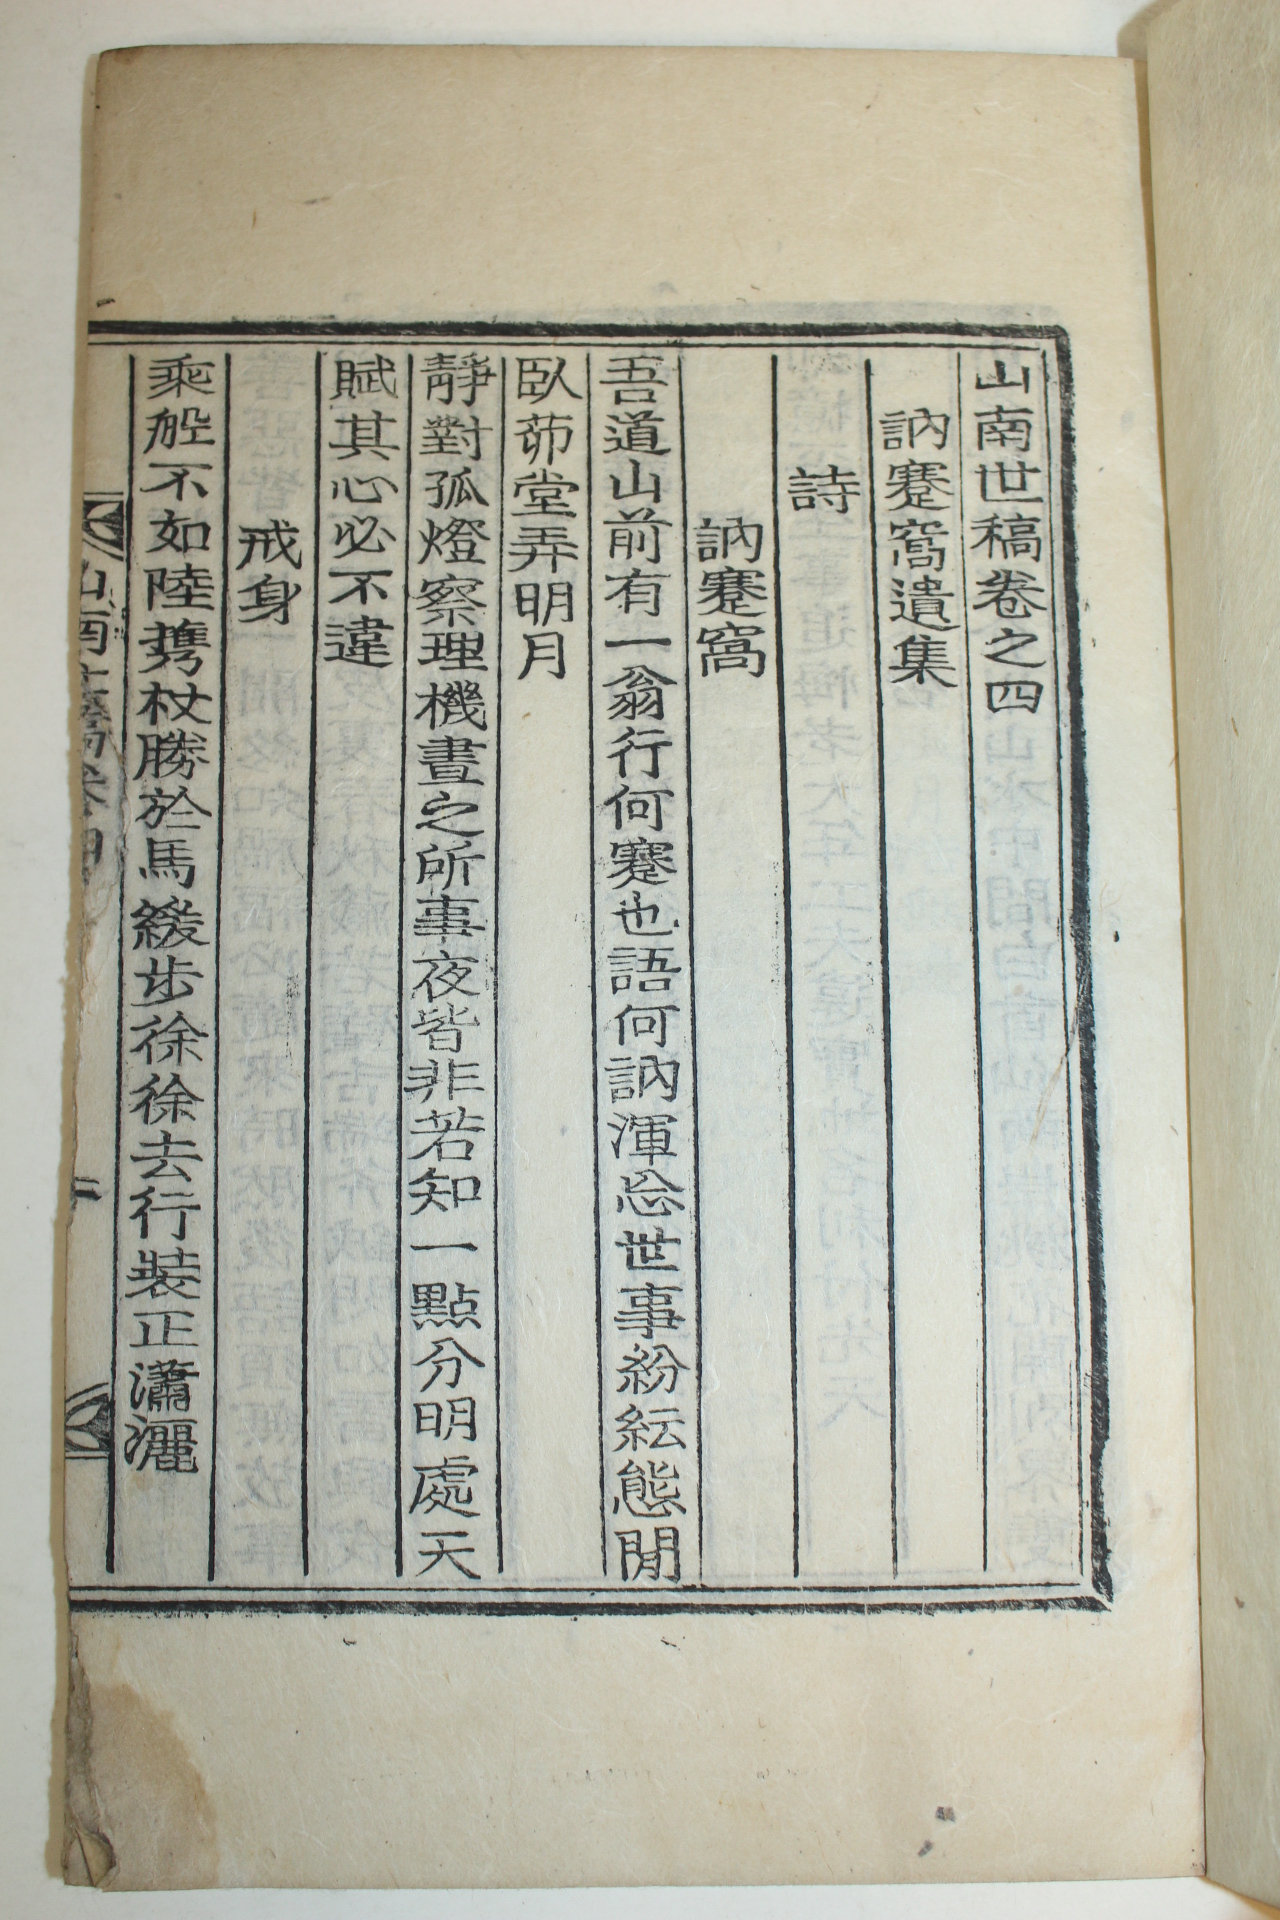 山南世稿卷之四
訥蹇窩遺集
詩
訥蹇窩
吾道山前有一翁行何蹇也語何訥渾忩世事紛紜態閒
臥茆堂弄明月
靜對孤燈察理機晝之所事夜皆非若知一點分明處天
賦其心必不違
戒身
乘舩不如陸携杖勝於馬緩步徐徐去行裝正瀟灑
山南世稿卷四
一